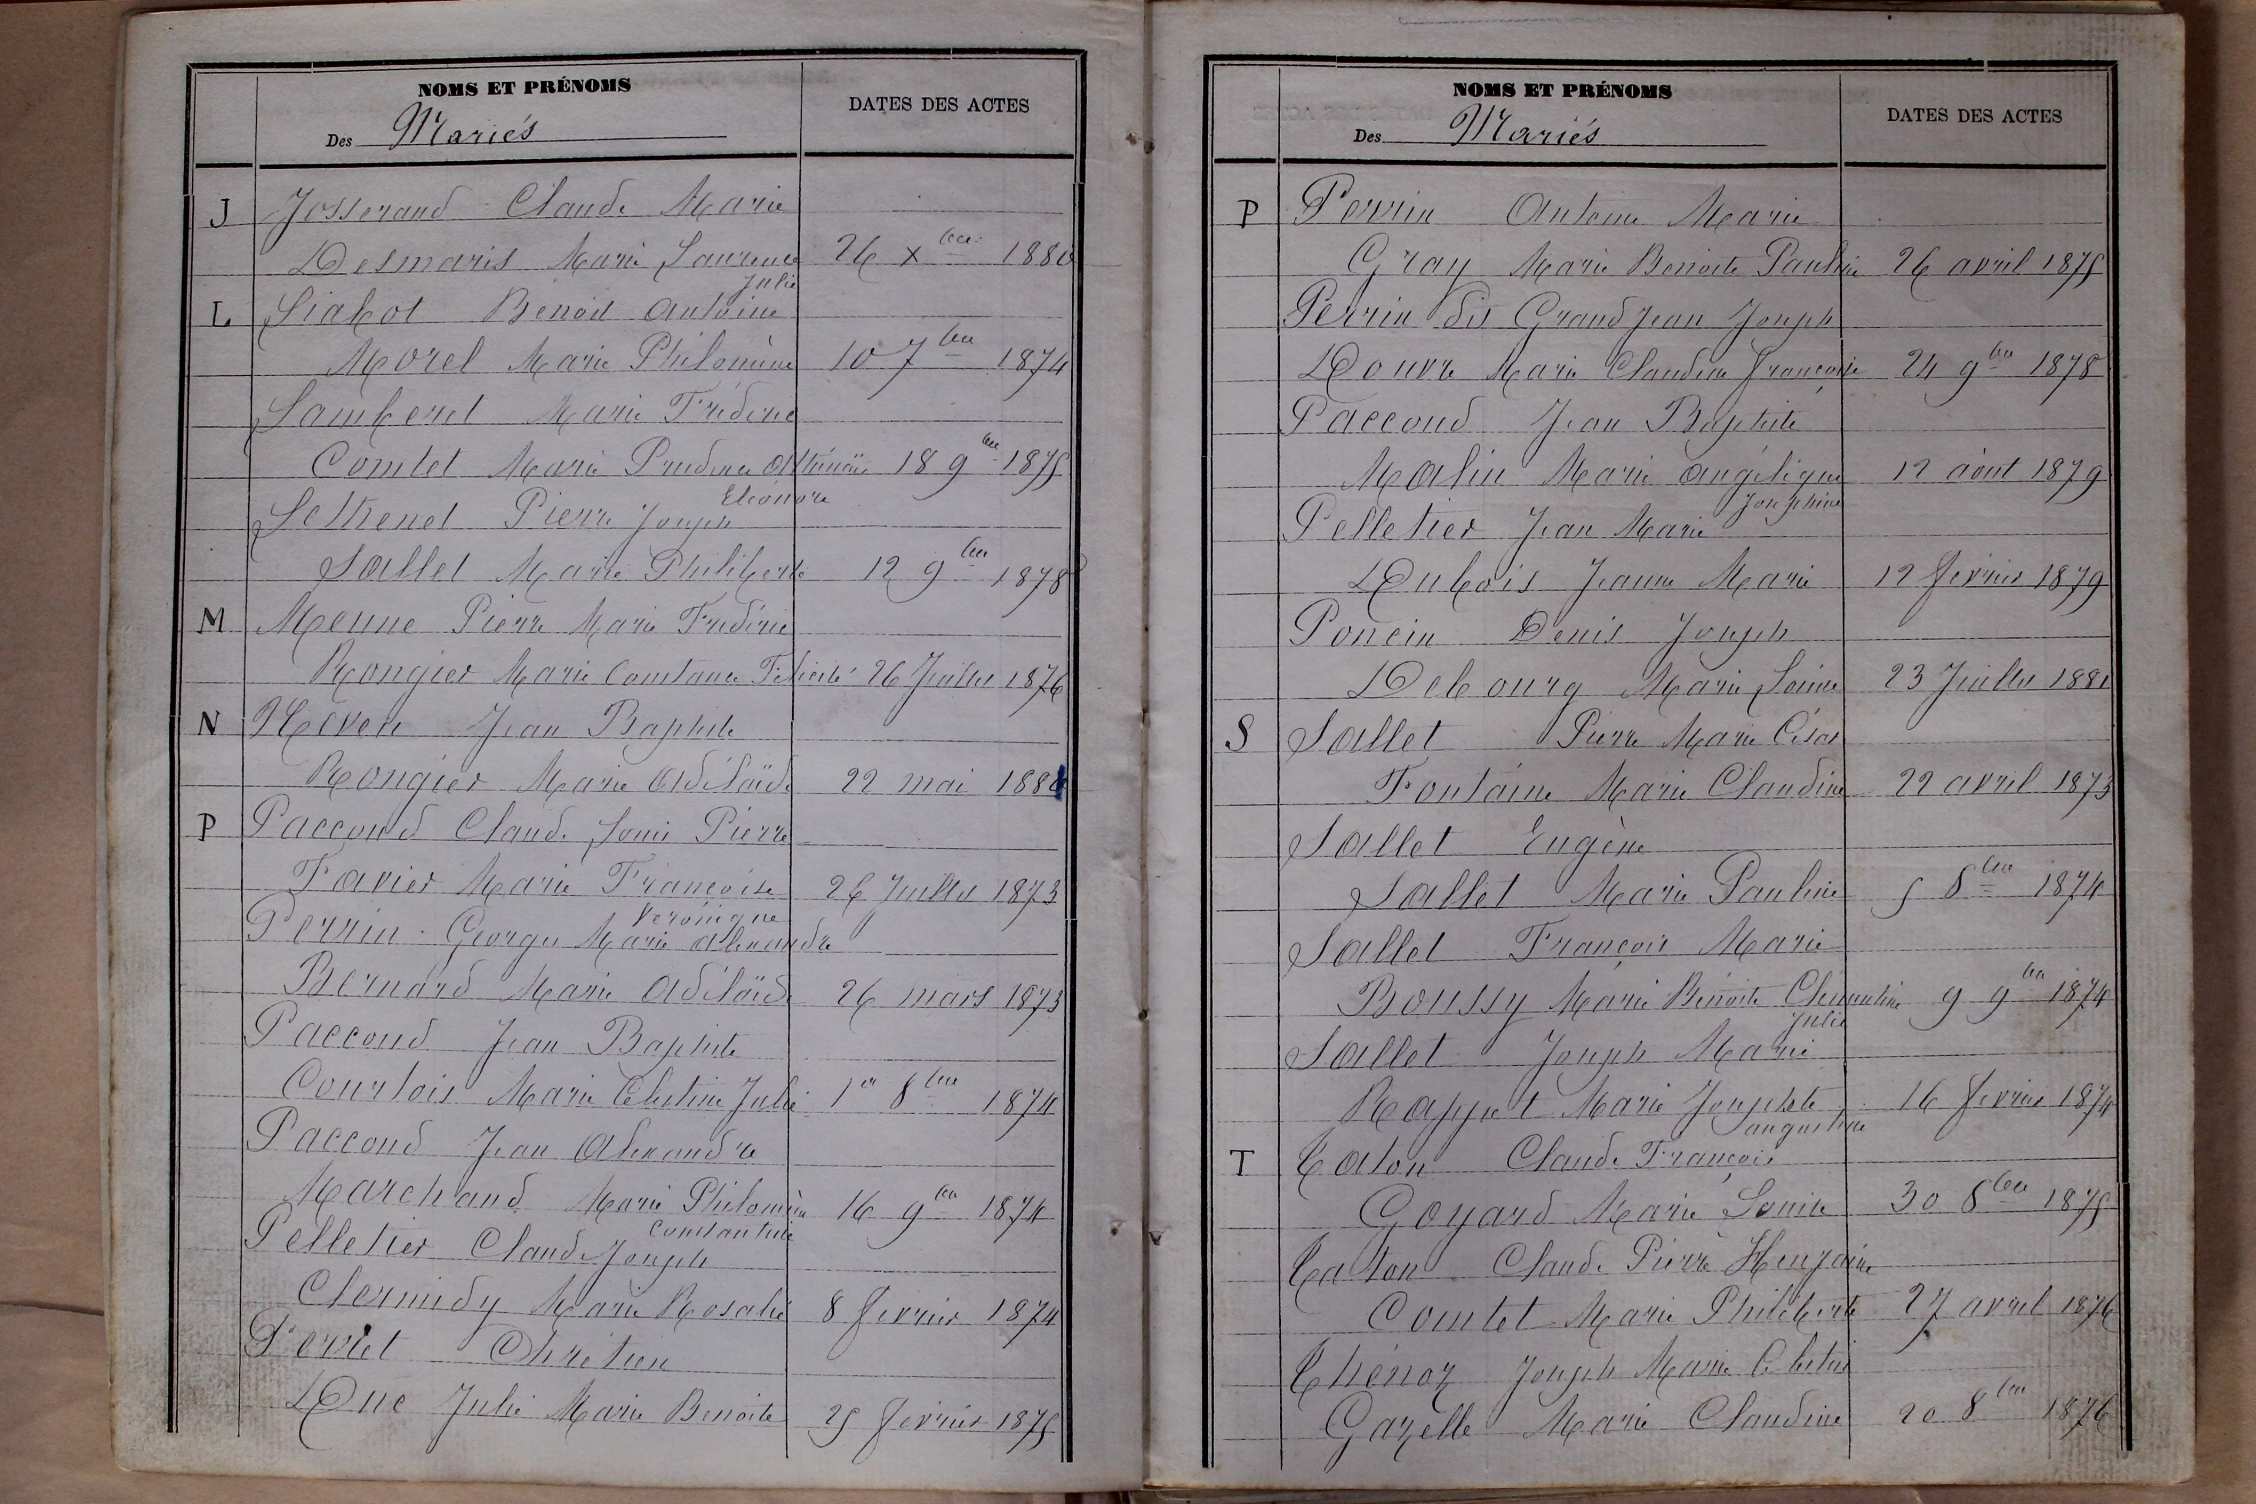 NOMS ET PRÉNOMS
Des Mariés
DATES DES ACTES
J Josserand Claude Marie
Desmaris Marie Laurence 26 xbre 1880
Julie
L Liabot Benoit Antoine
Morel Marie Philomène 10 7bre 1874
Lamberet Marie Frédéric
Comtet Marie Prudence 18 9bre 1875
Eléonore
Lethenet Pierre Joseph
Sallet Marie Philiberte 12 9bre 1878
M Menne Pierre Marie Frédéric
Rongier Marie Constance Félicité 26 Juillet 1876
N Neven Jean Baptiste
Rongier Marie Adélaïde 22 mai 188
P Paccoud Claude Louis Pierre
Favier Marie Françoise 26 Juillet 1873
Véronique
Perrin Georges Marie Alexandre
Bernard Marie Adélaïde 26 mars 1873
Paccoud Jean Baptiste
Courtois Marie Célestine Julie 1er 8bre 1874
Paccoud Jean Alexandre
Marchand Marie Philomène 16 9bre 1874
Constantine
Pelletier Claude Joseph
Clermidy Marie Rosalie 8 février 1874
Perret Chrétien
Duc Julie Marie Benoite 25 février 1875
NOMS ET PRÉNOMS
Des Mariés
DATES DES ACTES
P Perrin Antoine Marie
Gray Marie Benoite Pauline 26 avril 1875
Perrin dit Grand Jean Joseph
Douvre Marie Claudine Françoise 24 9bre 1878
Paccoud Jean Baptiste
Malin Marie Angélique 12 août 1879
Joséphine
Pelletier Jean Marie
Dubois Jeanne Marie 12 février 1879
Poncin Denis Joseph
Debourg Marie Louise 23 Juillet 1881
S Sallet Pierre Marie César
Fontaine Marie Claudine 22 avril 1873
Sallet Eugène
Sallet Marie Pauline 5 8bre 1874
Sallet François Marie
Boussy Marie Benoite Clémentine 9 9bre 1874
Julie
Sallet Joseph Marie
Rappet Marie Josephte 16 février 1874
augustine
T Caton Claude François
Goyard Marie Louise 30 8bre 1875
Caton Claude Pierre
Comtet Marie Philiberte 27 avril 1876
Chénoz Joseph Marie Célestin
Gazelle Marie Claudine 20 8bre 1876